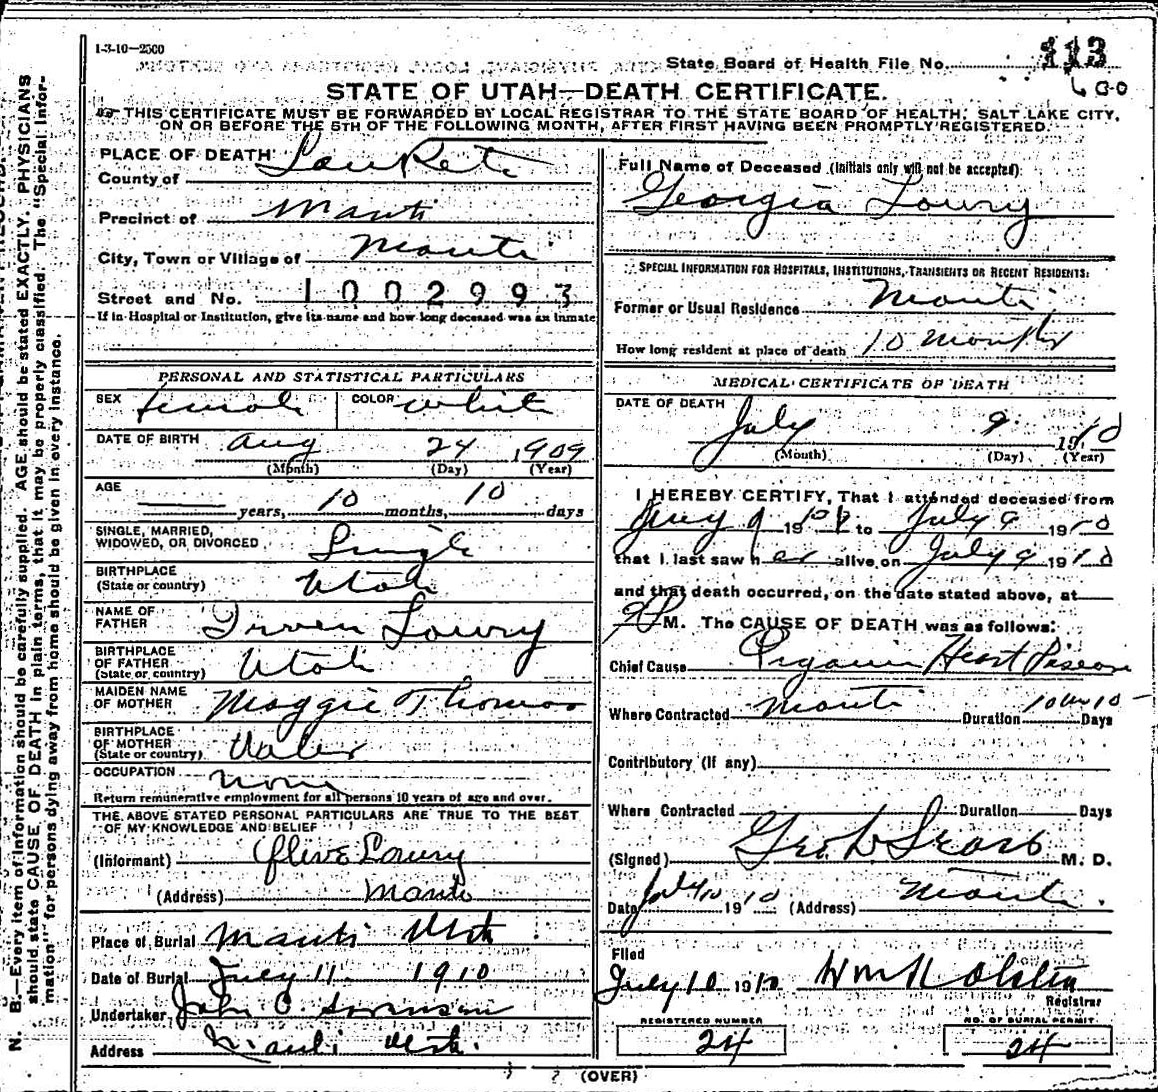 1-3-10—2500
State Board of Health File No. 113
G-O
STATE OF UTAH—DEATH CERTIFICATE.
THIS CERTIFICATE MUST BE FORWARDED BY LOCAL REGISTRAR TO THE STATE BOARD OF HEALTH, SALT LAKE CITY,
ON OR BEFORE THE 5TH OF THE FOLLOWING MONTH, AFTER FIRST HAVING BEEN PROMPTLY REGISTERED.
PLACE OF DEATH
County of SanPete
Precinct of Manti
City, Town or Village of Manti
Street and No. 1002993
If in Hospital or Institution, give its name and how long deceased was an inmate
PERSONAL AND STATISTICAL PARTICULARS
SEX female COLOR white
DATE OF BIRTH Aug 24 1909
(Month) (Day) (Year)
AGE
years, 10 months, 10 days
SINGLE, MARRIED,
WIDOWED, OR DIVORCED Single
BIRTHPLACE
(State or country) Utah
NAME OF
FATHER Irven Lowry
BIRTHPLACE
OF FATHER
(State or country) Utah
MAIDEN NAME
OF MOTHER Maggie Thomas
BIRTHPLACE
OF MOTHER
(State or country) Wales
OCCUPATION None
Return remunerative employment for all persons 10 years of age and over.
THE ABOVE STATED PERSONAL PARTICULARS ARE TRUE TO THE BEST
OF MY KNOWLEDGE AND BELIEF
(Informant) Olive Lowry
(Address) Manti
Place of Burial Manti Utah
Date of Burial July 11 1910
Undertaker John C. Swensen
Address Manti Utah.
Full Name of Deceased (Initials only will not be accepted)
Georgia Lowry
SPECIAL INFORMATION FOR HOSPITALS, INSTITUTIONS, TRANSIENTS OR RECENT RESIDENTS:
Former or Usual Residence Manti
How long resident at place of death 10 Months
MEDICAL CERTIFICATE OF DEATH
DATE OF DEATH
July 9 1910
(Month) (Day) (Year)
I HEREBY CERTIFY, That I attended deceased from
9 19 to July 9 1910
that I last saw her alive on July 9 1910
and that death occurred, on the date stated above, at
9 P M. The CAUSE OF DEATH was as follows:
Chief Cause Organic Heart Disease
Where Contracted Manti Duration 10 m 10 Days
Contributory (If any)
Where Contracted Duration Days
(Signed) Geo. L. Sears M. D.
Date July 10 1910 (Address) Manti.
Filed
July 10 1910 Wm K Olsten
Registrar
REGISTERED NUMBER
24
NO. OF BURIAL PERMIT
24
(OVER)
N. B.—Every item of information should be carefully supplied. AGE should be stated EXACTLY. PHYSICIANS
should state CAUSE OF DEATH in plain terms, that it may be properly classified. The "Special Infor-
mation" for persons dying away from home should be given in every instance.